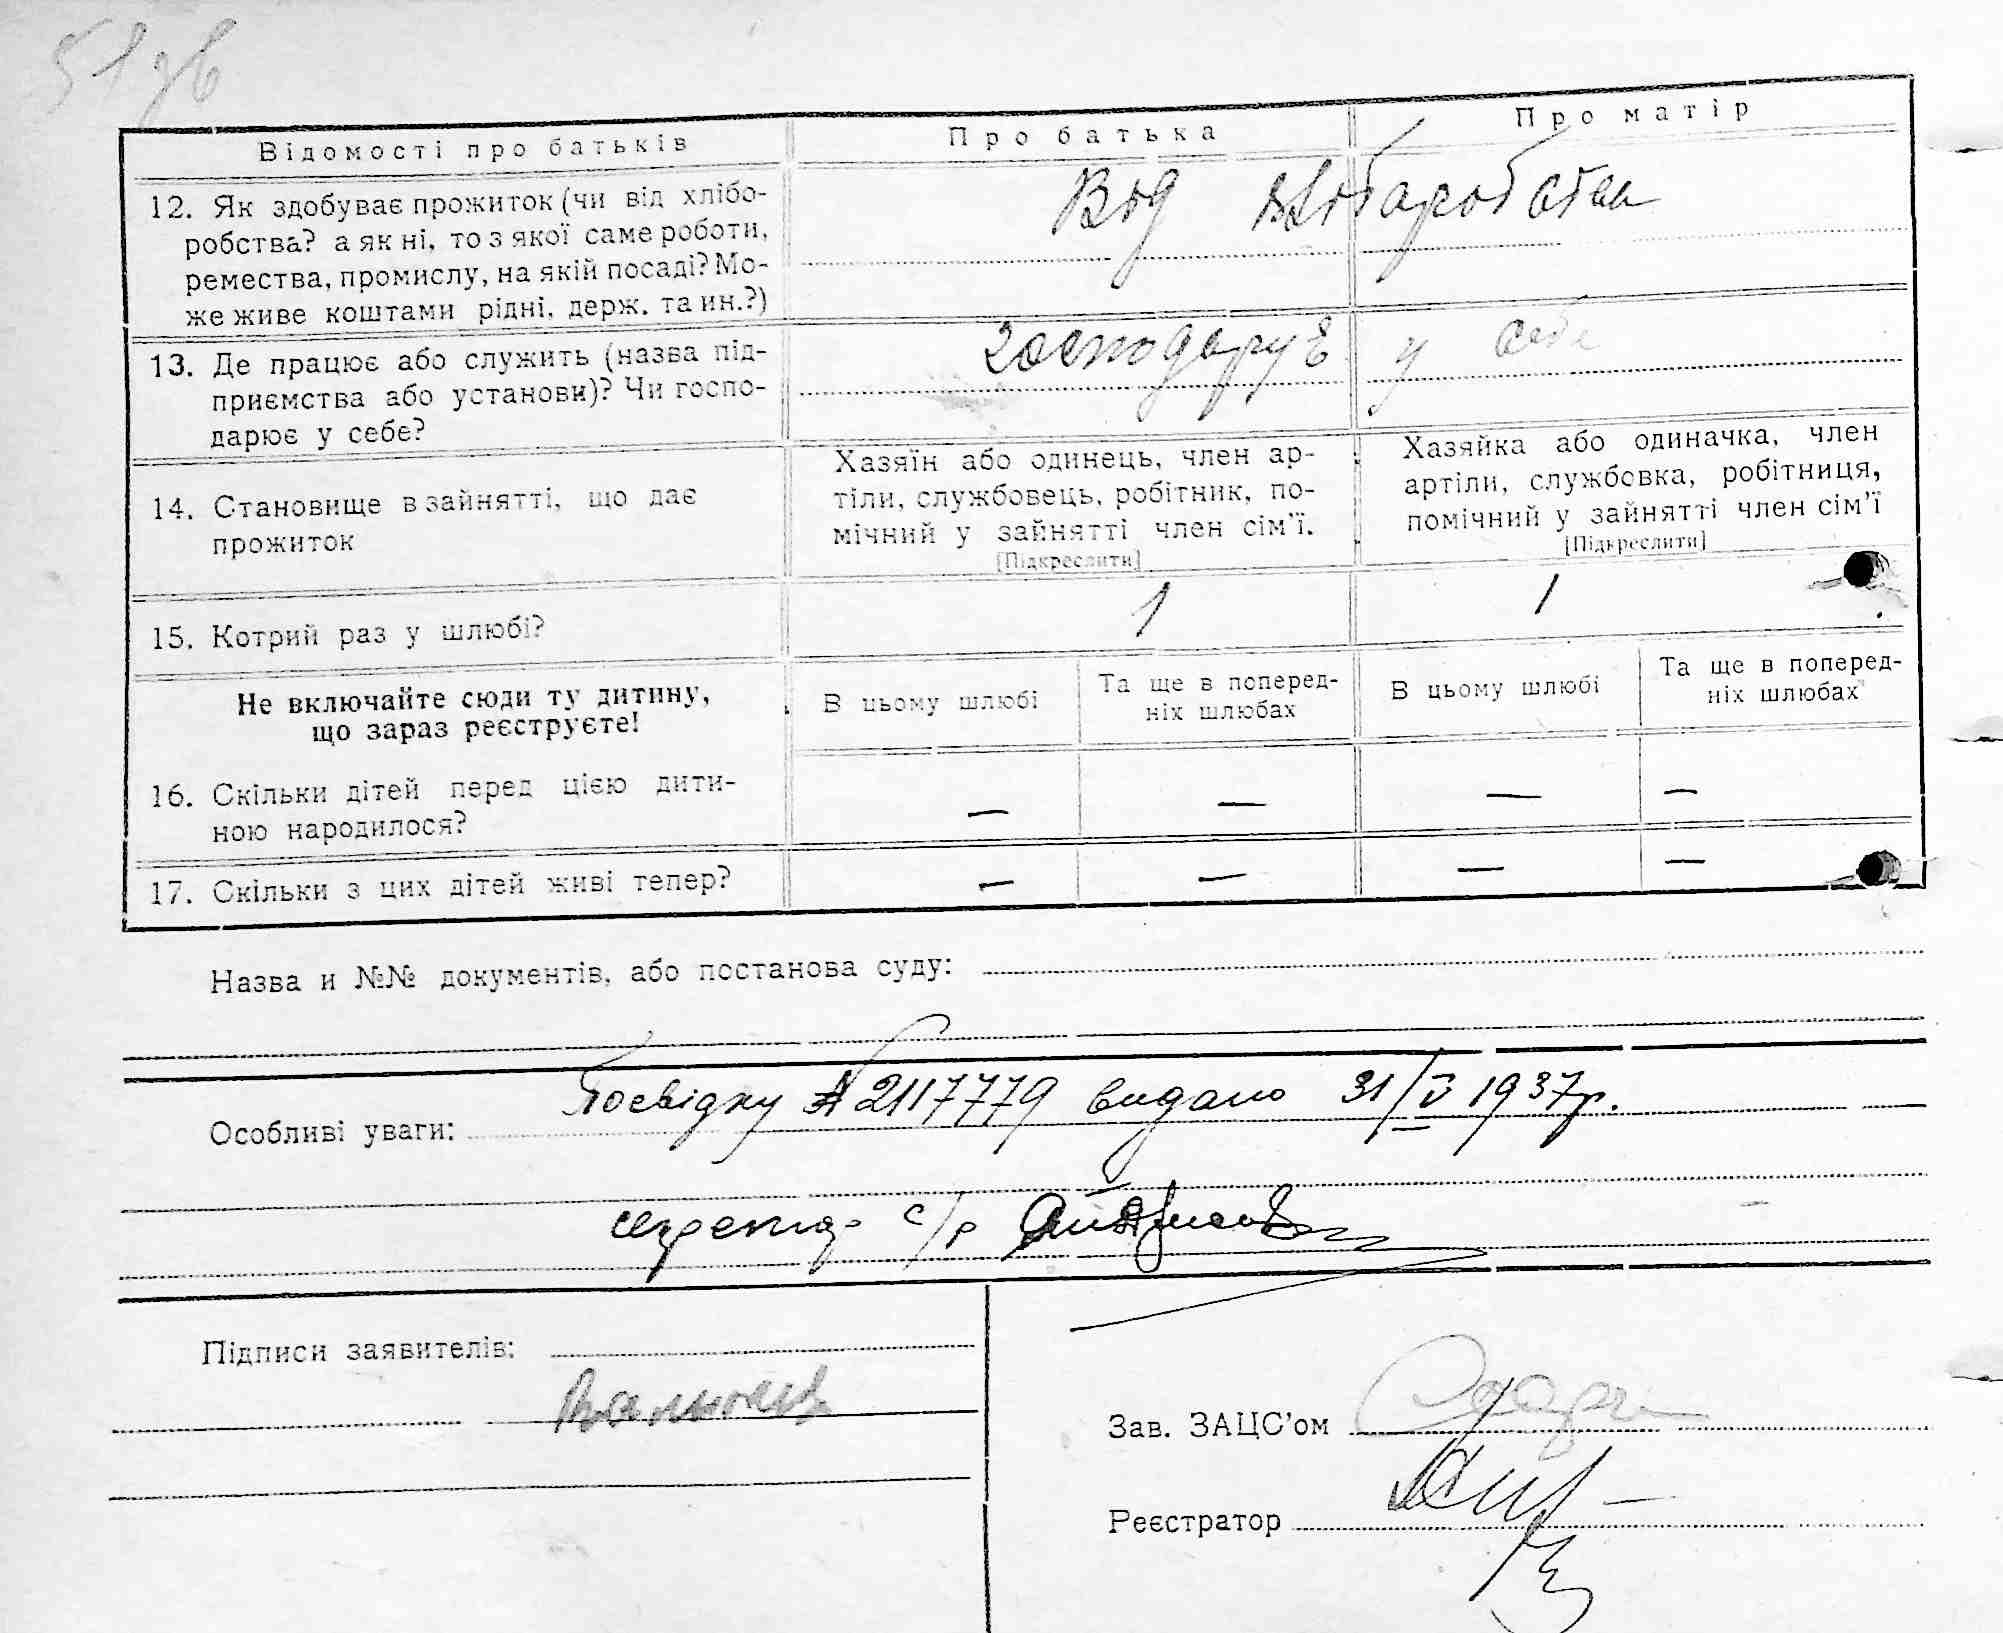 51 зв
Відомості про батьків
Про батька
Про матір
12. Як здобуває прожиток (чи від хлібо-
робства? а як ні, то з якої саме роботи,
ремества, промислу, на якій посаді? Мо-
же живе коштами рідні, держ. та ин.?)
Від хліборобства
13. Де працює або служить (назва під-
приємства або установи)? Чи госпо-
дарює у себе?
господарує у себе
14. Становище в зайнятті, що дає
прожиток
Хазяїн або одинець, член ар-
тіли, службовець, робітник, по-
мічний у зайнятті член сім'ї.
[Підкреслити]
Хазяйка або одиначка, член
артіли, службовка, робітниця,
помічний у зайнятті член сім'ї
[Підкреслити]
15. Котрий раз у шлюбі?
1
1
Не включайте сюди ту дитину,
що зараз реєструєте!
В цьому шлюбі
Та ще в поперед-
ніх шлюбах
В цьому шлюбі
Та ще в поперед-
ніх шлюбах
16. Скільки дітей перед цією дити-
ною народилося?
— — — —
17. Скільки з цих дітей живі тепер?
— — — —
Назва и №№ документів, або постанова суду:
Особливі уваги: Посвідку № 2117779 видано 31/V 1937р.
секретар с/р
Підписи заявителів:
Зав. ЗАЦС'ом
Реєстратор